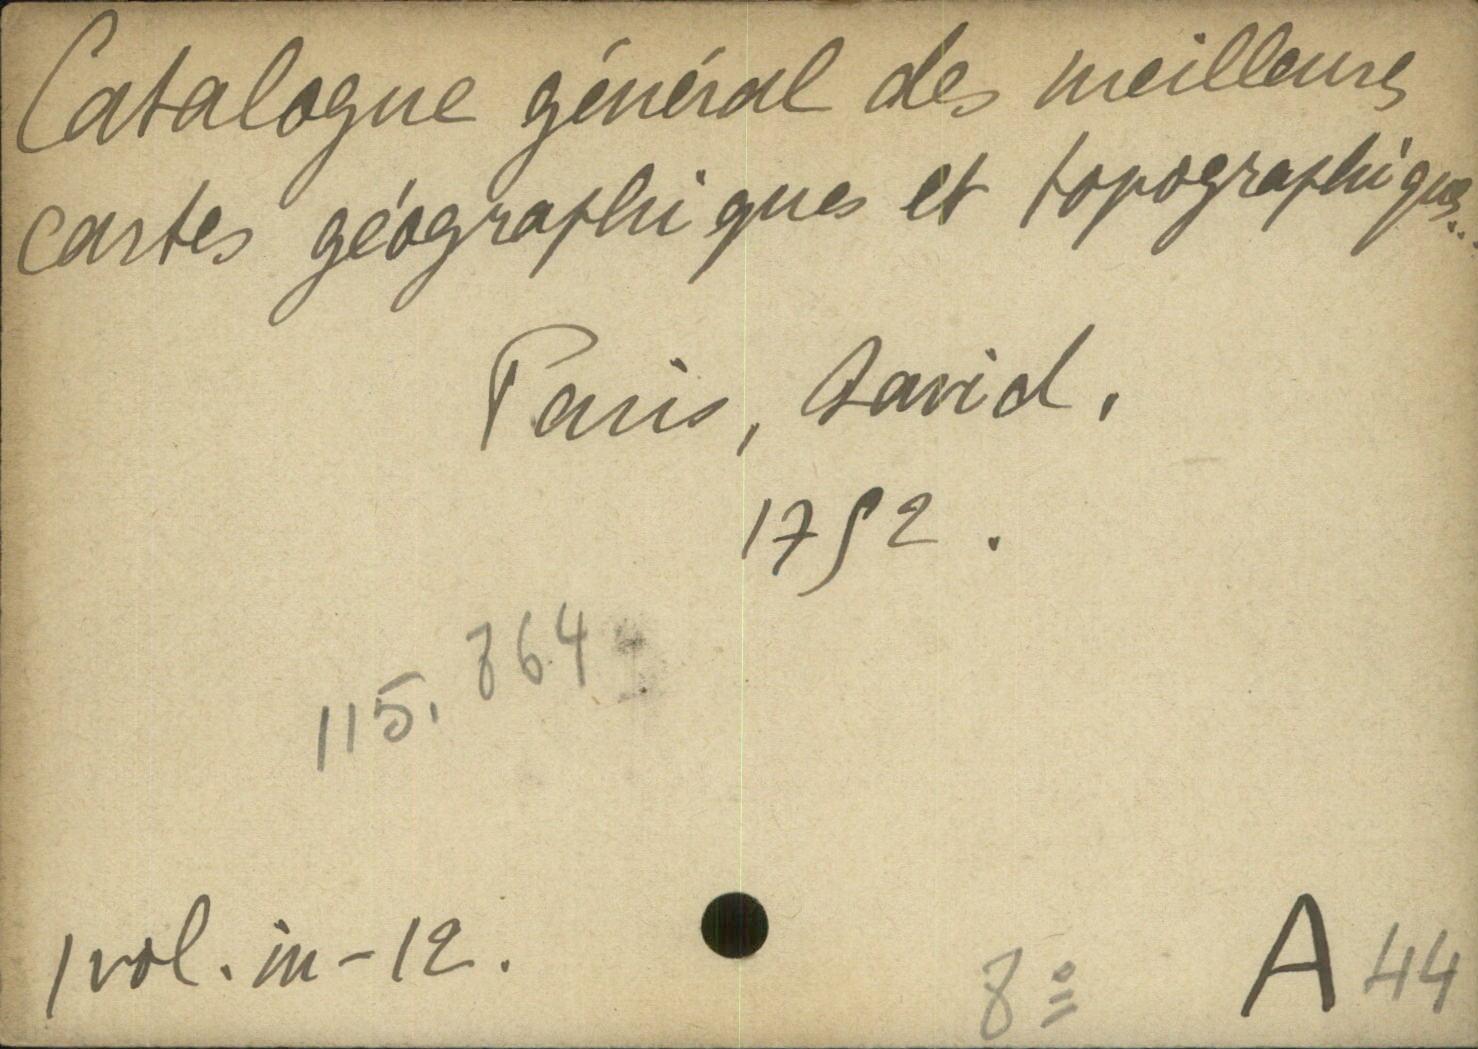 Catalogue général des meilleures
cartes géographiques et topographiques...
Paris, David.
1752.
115.864
1 vol. in-12.
8º A 44